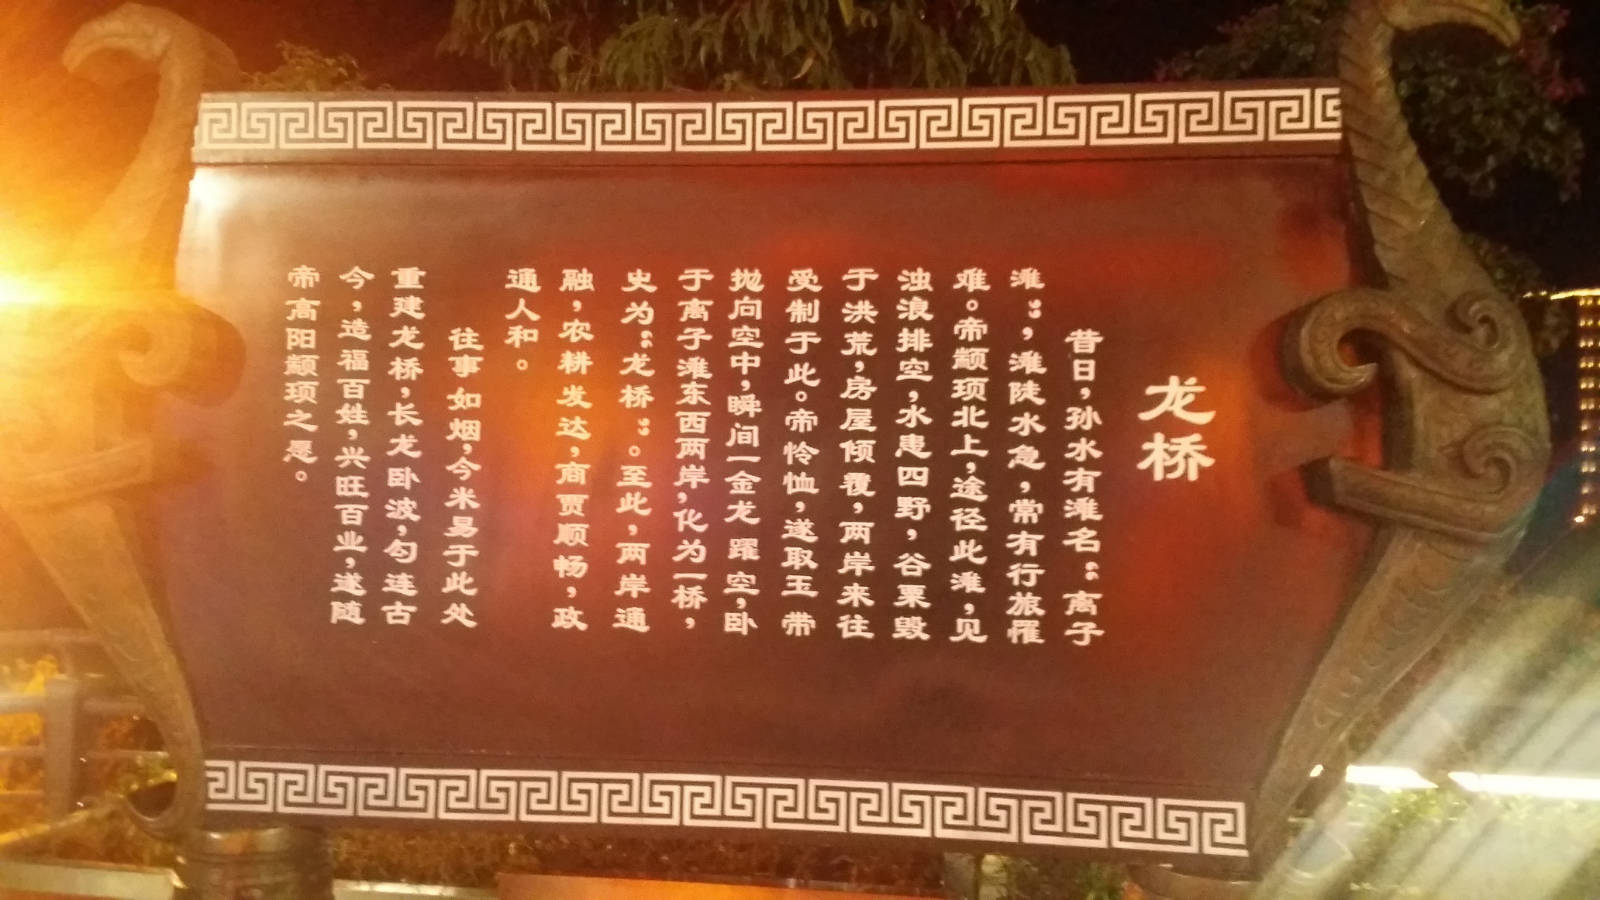 龙桥
昔日，孙水有滩名“离子
滩”，滩陡水急，常有行旅罹
难。帝颛顼北上，途径此滩，见
浊浪排空，水患四野，谷粟毁
于洪荒，房屋倾覆，两岸来往
受制于此。帝怜恤，遂取玉带
抛向空中，瞬间一金龙跃空，卧
于离子滩东西两岸，化为一桥，
史为“龙桥”。至此，两岸通
融，农耕发达，商贾顺畅，政
通人和。
往事如烟，今米易于此处
重建龙桥，长龙卧波，勾连古
今，造福百姓，兴旺百业，遂随
帝高阳颛顼之愿。